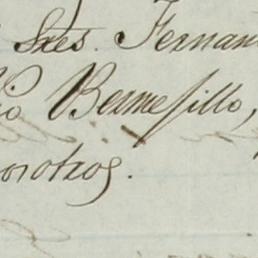 Sres. Fernan
io Bermesillo,
osotros.